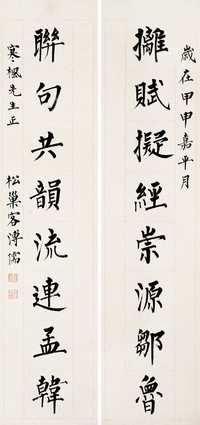 歲在甲申嘉平月
摛賦擬經崇源鄒魯
聯句共韻流連孟韓
寒楓先生正
松巢客溥儒